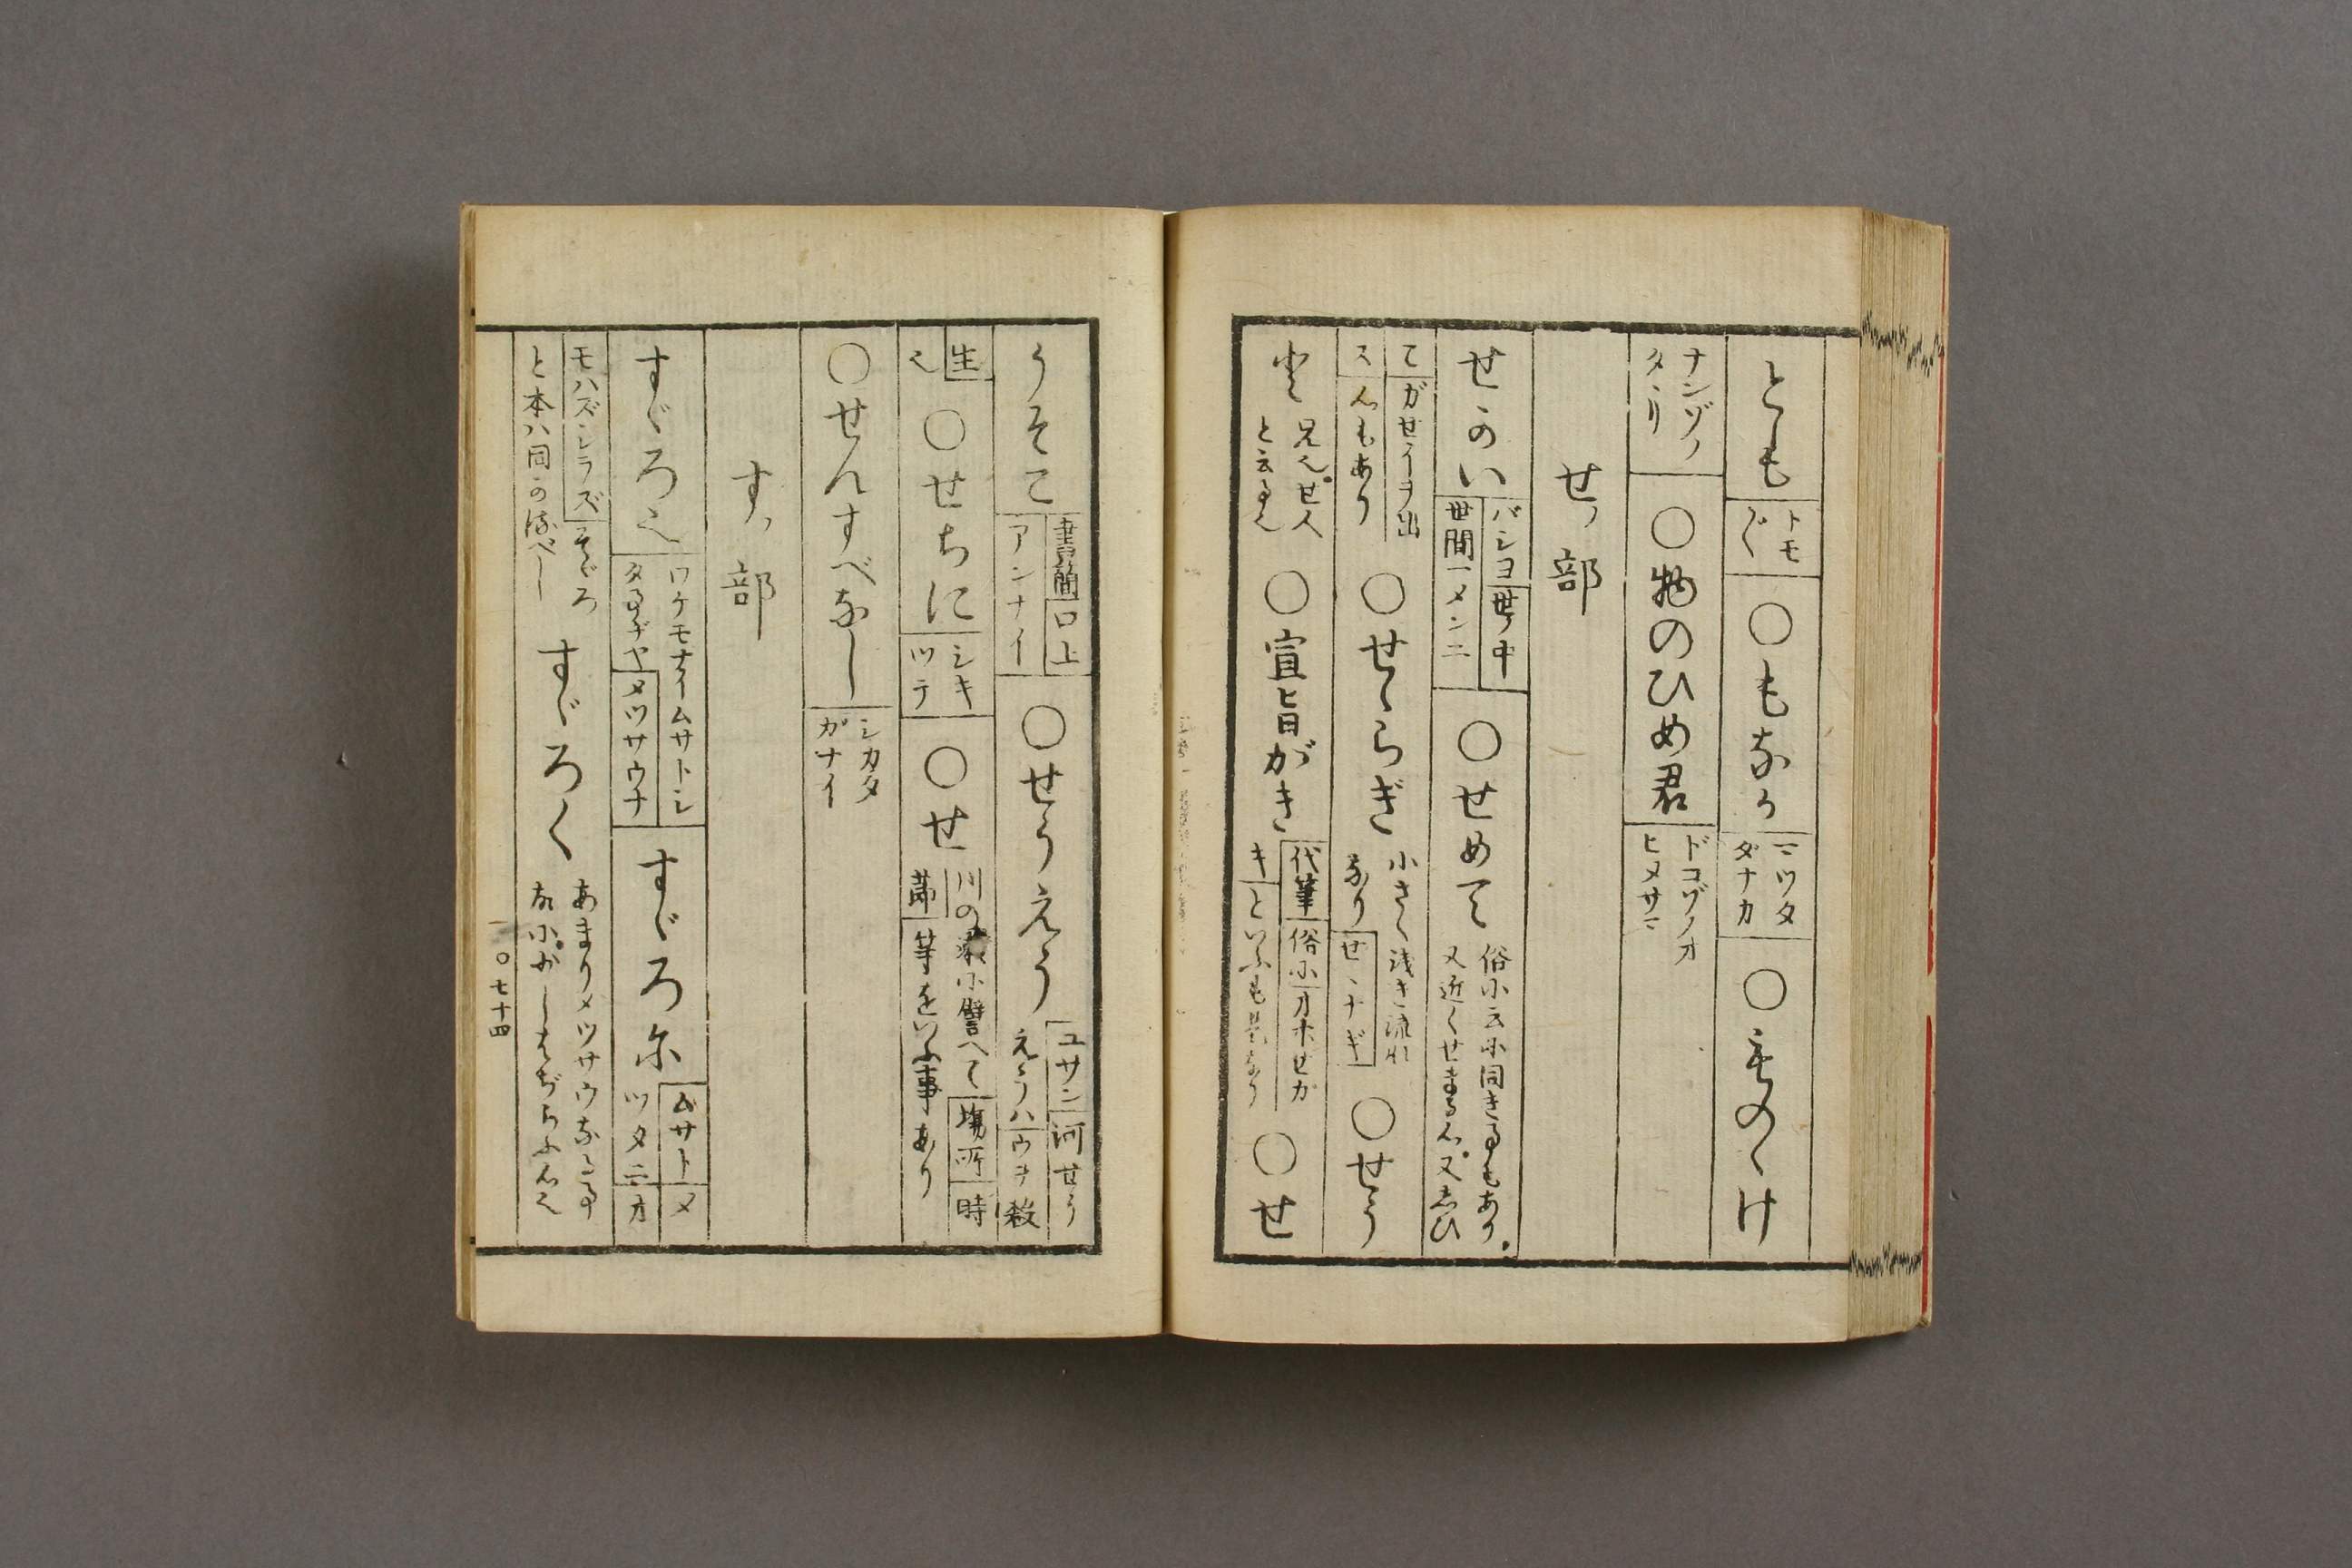 とも トモ〴〵 ○もなか マツタダナカ ○ものゝけ
ナンゾノタヽリ ○物のひめ君 ドコゾノオヒメサマ
せの部
せかい バシヨ 世ノ中 世間一メンニ ○せめて 俗に云に同きるもあり。又近くせまる心。又しひ
てガセイヲ出ス 心もあり ○せゝらぎ 小さく浅き流れなり せゝナギ ○せう
と 兄也。せ人と云る也 ○宣旨がき 代筆 俗にオホセガキ といふも是なり ○せ
うそこ 書簡 口上 アンナイ ○せうえう ユサン 河せうえうハウヲ殺
生也 ○せちに シキツテ ○せ 川の瀬に譬へて 場所 時節 等をいふ事あり
○せんすべなし シカタガナイ
すの部
すゞろ也 ワケモナイ ムサトシタるヂヤ メツサウナ すゞろに ムサト メツタニ オ
モハズシラズ そゞろと本ハ同かるべし すゞろく あまりメツサウなる事などにがしはぢらふ心也
○七十四